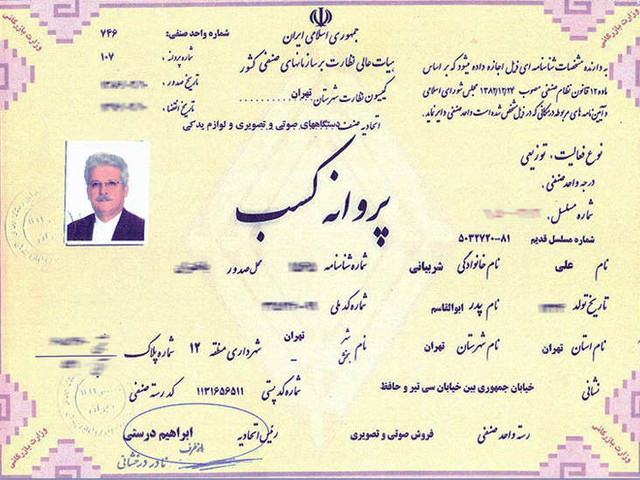 جمهوری اسلامی ایران
هیات عالی نظارت بر سازمانهای صنفی کشور
کمیسون نظارت شهرستان تهران
اتحادیه صنف دستگاههای صوتی و تصویری و لوازم یدکی
شماره واحد صنفی: ۷۴۶
شماره پرونده: ۱۰۷
تاریخ صدور:
تاریخ انقضاء:
به دارنده مشخصات شناسنامه ای ذیل اجازه داده میشود که بر اساس
ماده ۱۲ قانون نظام صنفی مصوب ۱۳۸۲/۱۲/۲۴ مجلس شورای اسلامی
و آیین نامه های مربوطه در مکانی که در ذیل مشخص شده است واحد صنفی دایر نماید.
پروانه کسب
نوع فعالیت: توزیعی
درجه واحد صنفی:
شماره مسلسل:
شماره مسلسل قدیم ۵۰۳۲۷۲۰-۸۱
نام علی نام خانوادگی شربیانی شماره شناسنامه محل صدور
تاریخ تولد نام پدر ابوالقاسم شماره کد ملی
نام استان تهران نام شهرستان تهران نام شهر بخش تهران – شهرداری منطقه ۱۲ شماره پلاک
نشانی خیابان جمهوری بین خیابان سی تیر و حافظ شماره کد پستی ۱۱۳۱۶۵۶۵۱۱ کد رسته صنفی
رسته واحد صنفی فروش صوتی و تصویری رئیس اتحادیه ابراهیم درستی
از طرف
نادر درخشانی
وزارت بازرگانی
وزارت بازرگانی
وزارت بازرگانی
وزارت بازرگانی